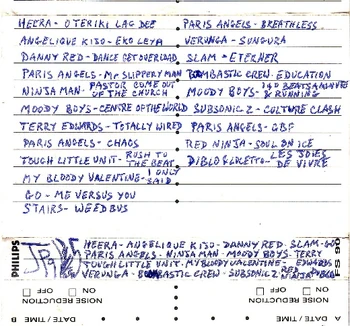 HEERA - OTERIKI LAG DEE
ANGELIQUE KIJO - EKO LEYA
DANNY RED - DANCE GET OVERLOAD
PARIS ANGELS - MR SLIPPERY MAN
NINJA MAN - PASTOR COME OUT OF THE CHURCH
MOODY BOYS - CENTRE OF THE WORLD
TERRY EDWARDS - TOTALLY WIRED
PARIS ANGELS - CHAOS
TOUGH LITTLE UNIT - RUSH TO THE BEAT
MY BLOODY VALENTINE - I ONLY SAID
GO - ME VERSUS YOU
STAIRS - WEED BUS
PARIS ANGELS - BREATHLESS
VERUNGA - SUNGURA
SLAM - ETERNER
BOMBASTIC CREW - EDUCATION
MOODY BOYS - & RUNNING
SUBSONIC 2 - CULTURE CLASH
PARIS ANGELS - GBF
RED NINJA - SOUL ON ICE
DIBLO & LOKETO - LES JOIES DE VIVRE
PHILIPS
HEERA - ANGELIQUE KISO - DANNY RED - SLAM - GO
PARIS ANGELS - NINJA MAN - MOODY BOYS - TERRY EDWARDS
TOUGH LITTLE UNIT - MY BLOODY VALENTINE -
VERUNGA - BOMBASTIC CREW - SUBSONIC 2 RED NINJA DIBLO
FS 90
NOISE REDUCTION
ON OFF
A DATE/TIME
NOISE REDUCTION
ON OFF
B DATE/TIME